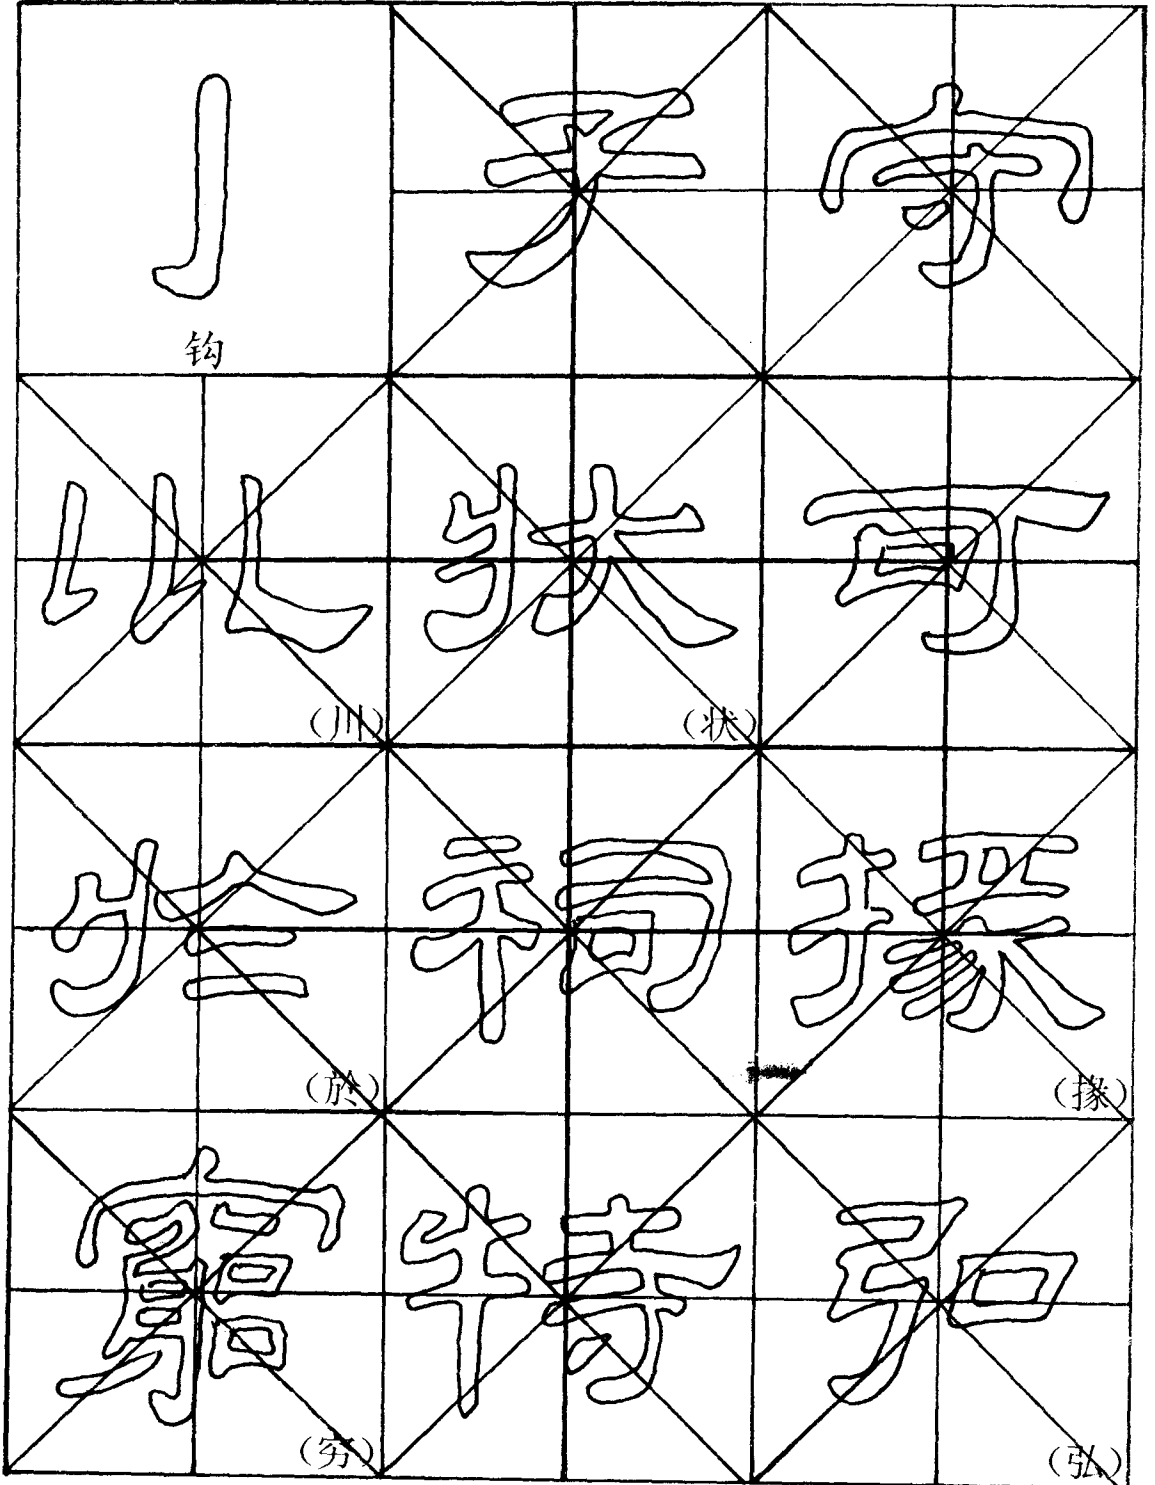 子 守
钩
川 状 可
（川） （状）
於 祠 掾
（於） （掾）
窮 特 弘
（穷） （弘）